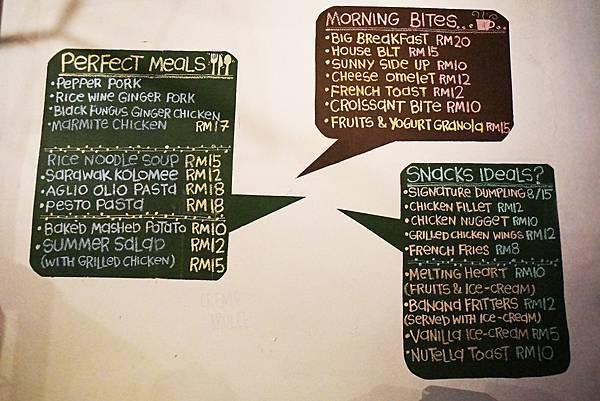 PERFECT MEALS
•PEPPER PORK
•RICE WINE GINGER PORK
•BLACK FUNGUS GINGER CHICKEN
•MARMITE CHICKEN RM17
RICE NOODLE SOUP RM15
•SARAWAK KOLOMEE RM12
•AGLIO OLIO PASTA RM18
•PESTO PASTA RM18
•BAKED MASHED POTATO RM10
•SUMMER SALAD RM12
(WITH GRILLED CHICKEN) RM15
MORNING BITES...
•BIG BREAKFAST RM20
•HOUSE BLT RM15
•SUNNY SIDE UP RM10
•CHEESE OMELET RM12
•FRENCH TOAST RM12
•CROISSANT BITE RM10
•FRUITS & YOGURT GRANOLA RM15
SNACKS IDEALS?
•SIGNATURE DUMPLING 8/15
•CHICKEN FILLET RM12
•CHICKEN NUGGET RM10
•GRILLED CHICKEN WINGS RM12
•FRENCH FRIES RM8
•MELTING HEART RM10
(FRUITS & ICE-CREAM)
•BANANA FRITTERS RM12
(SERVED WITH ICE-CREAM)
•VANILLA ICE-CREAM RM5
•NUTELLA TOAST RM10